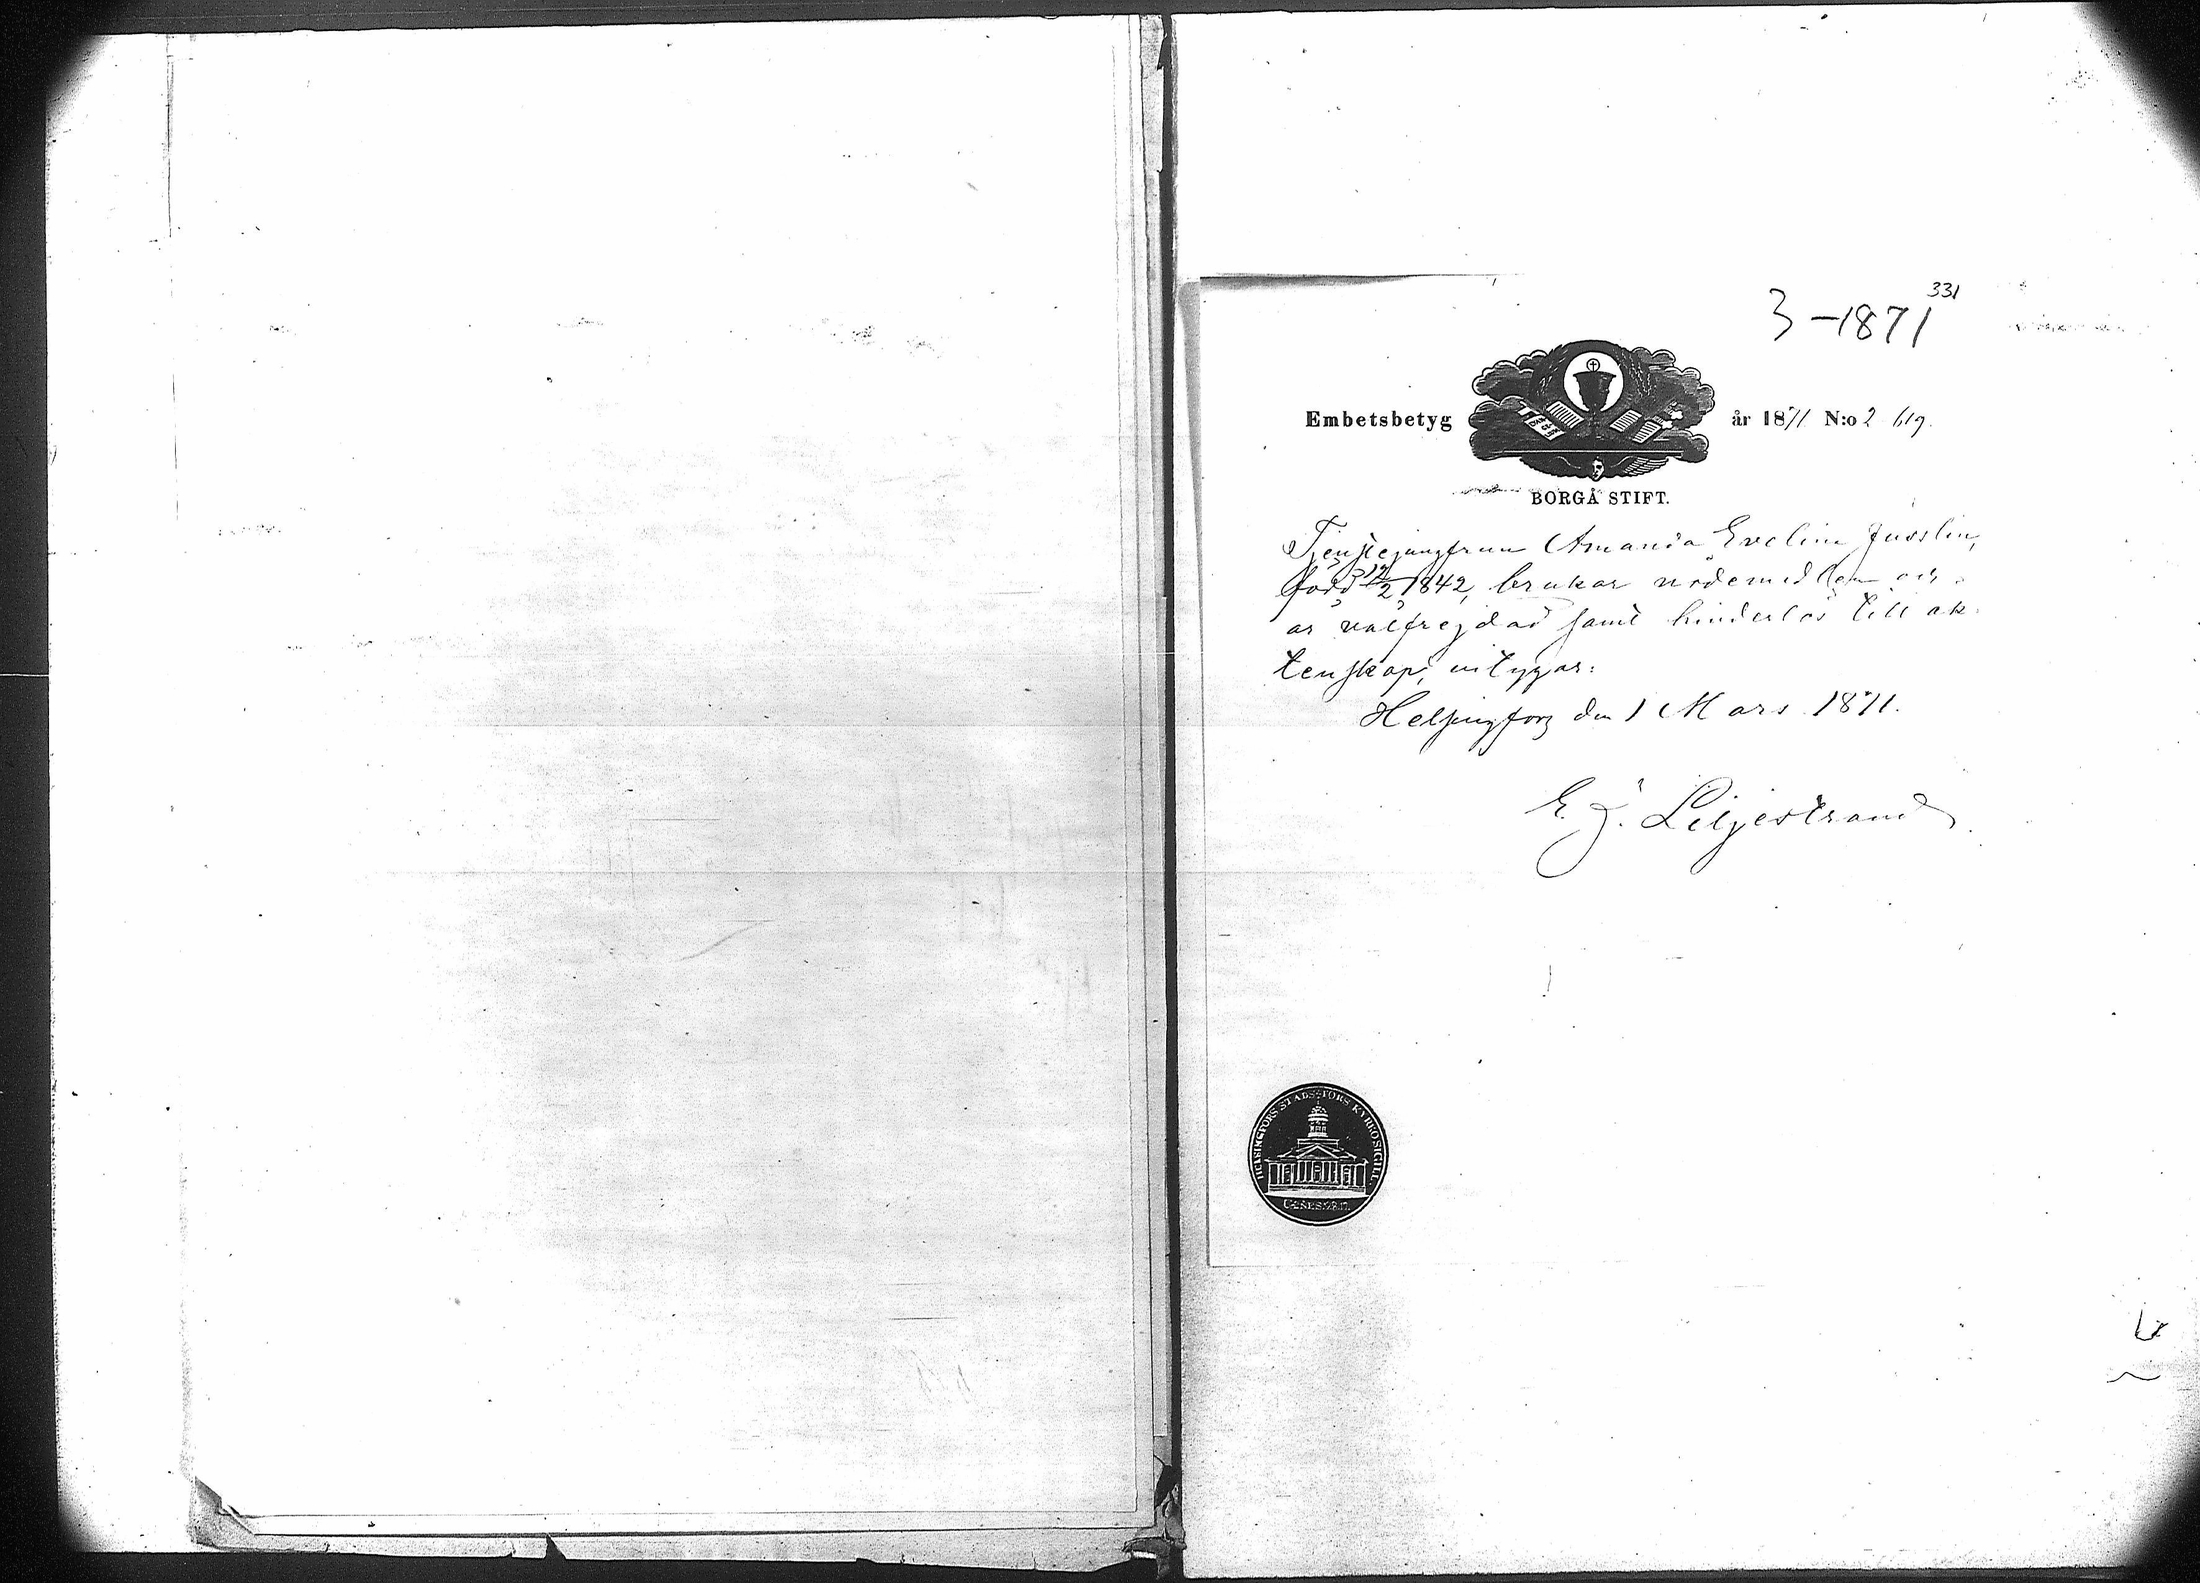 331
3-1871
Embetsbetyg år 1871 N:o 2 619.
BORGÅ STIFT.
Tjenstejungfrun Amanda Evelina Jusslin,
född 12/2 1842, brukar nådemedlen och
är välfrejdad samt hinderlös till äk-
tenskap, intygar:
Helsingfors den 1 Mars 1871.
E. J. Liljestrand
HELSINGFORS STADSFÖRS KYRKOSIGILL